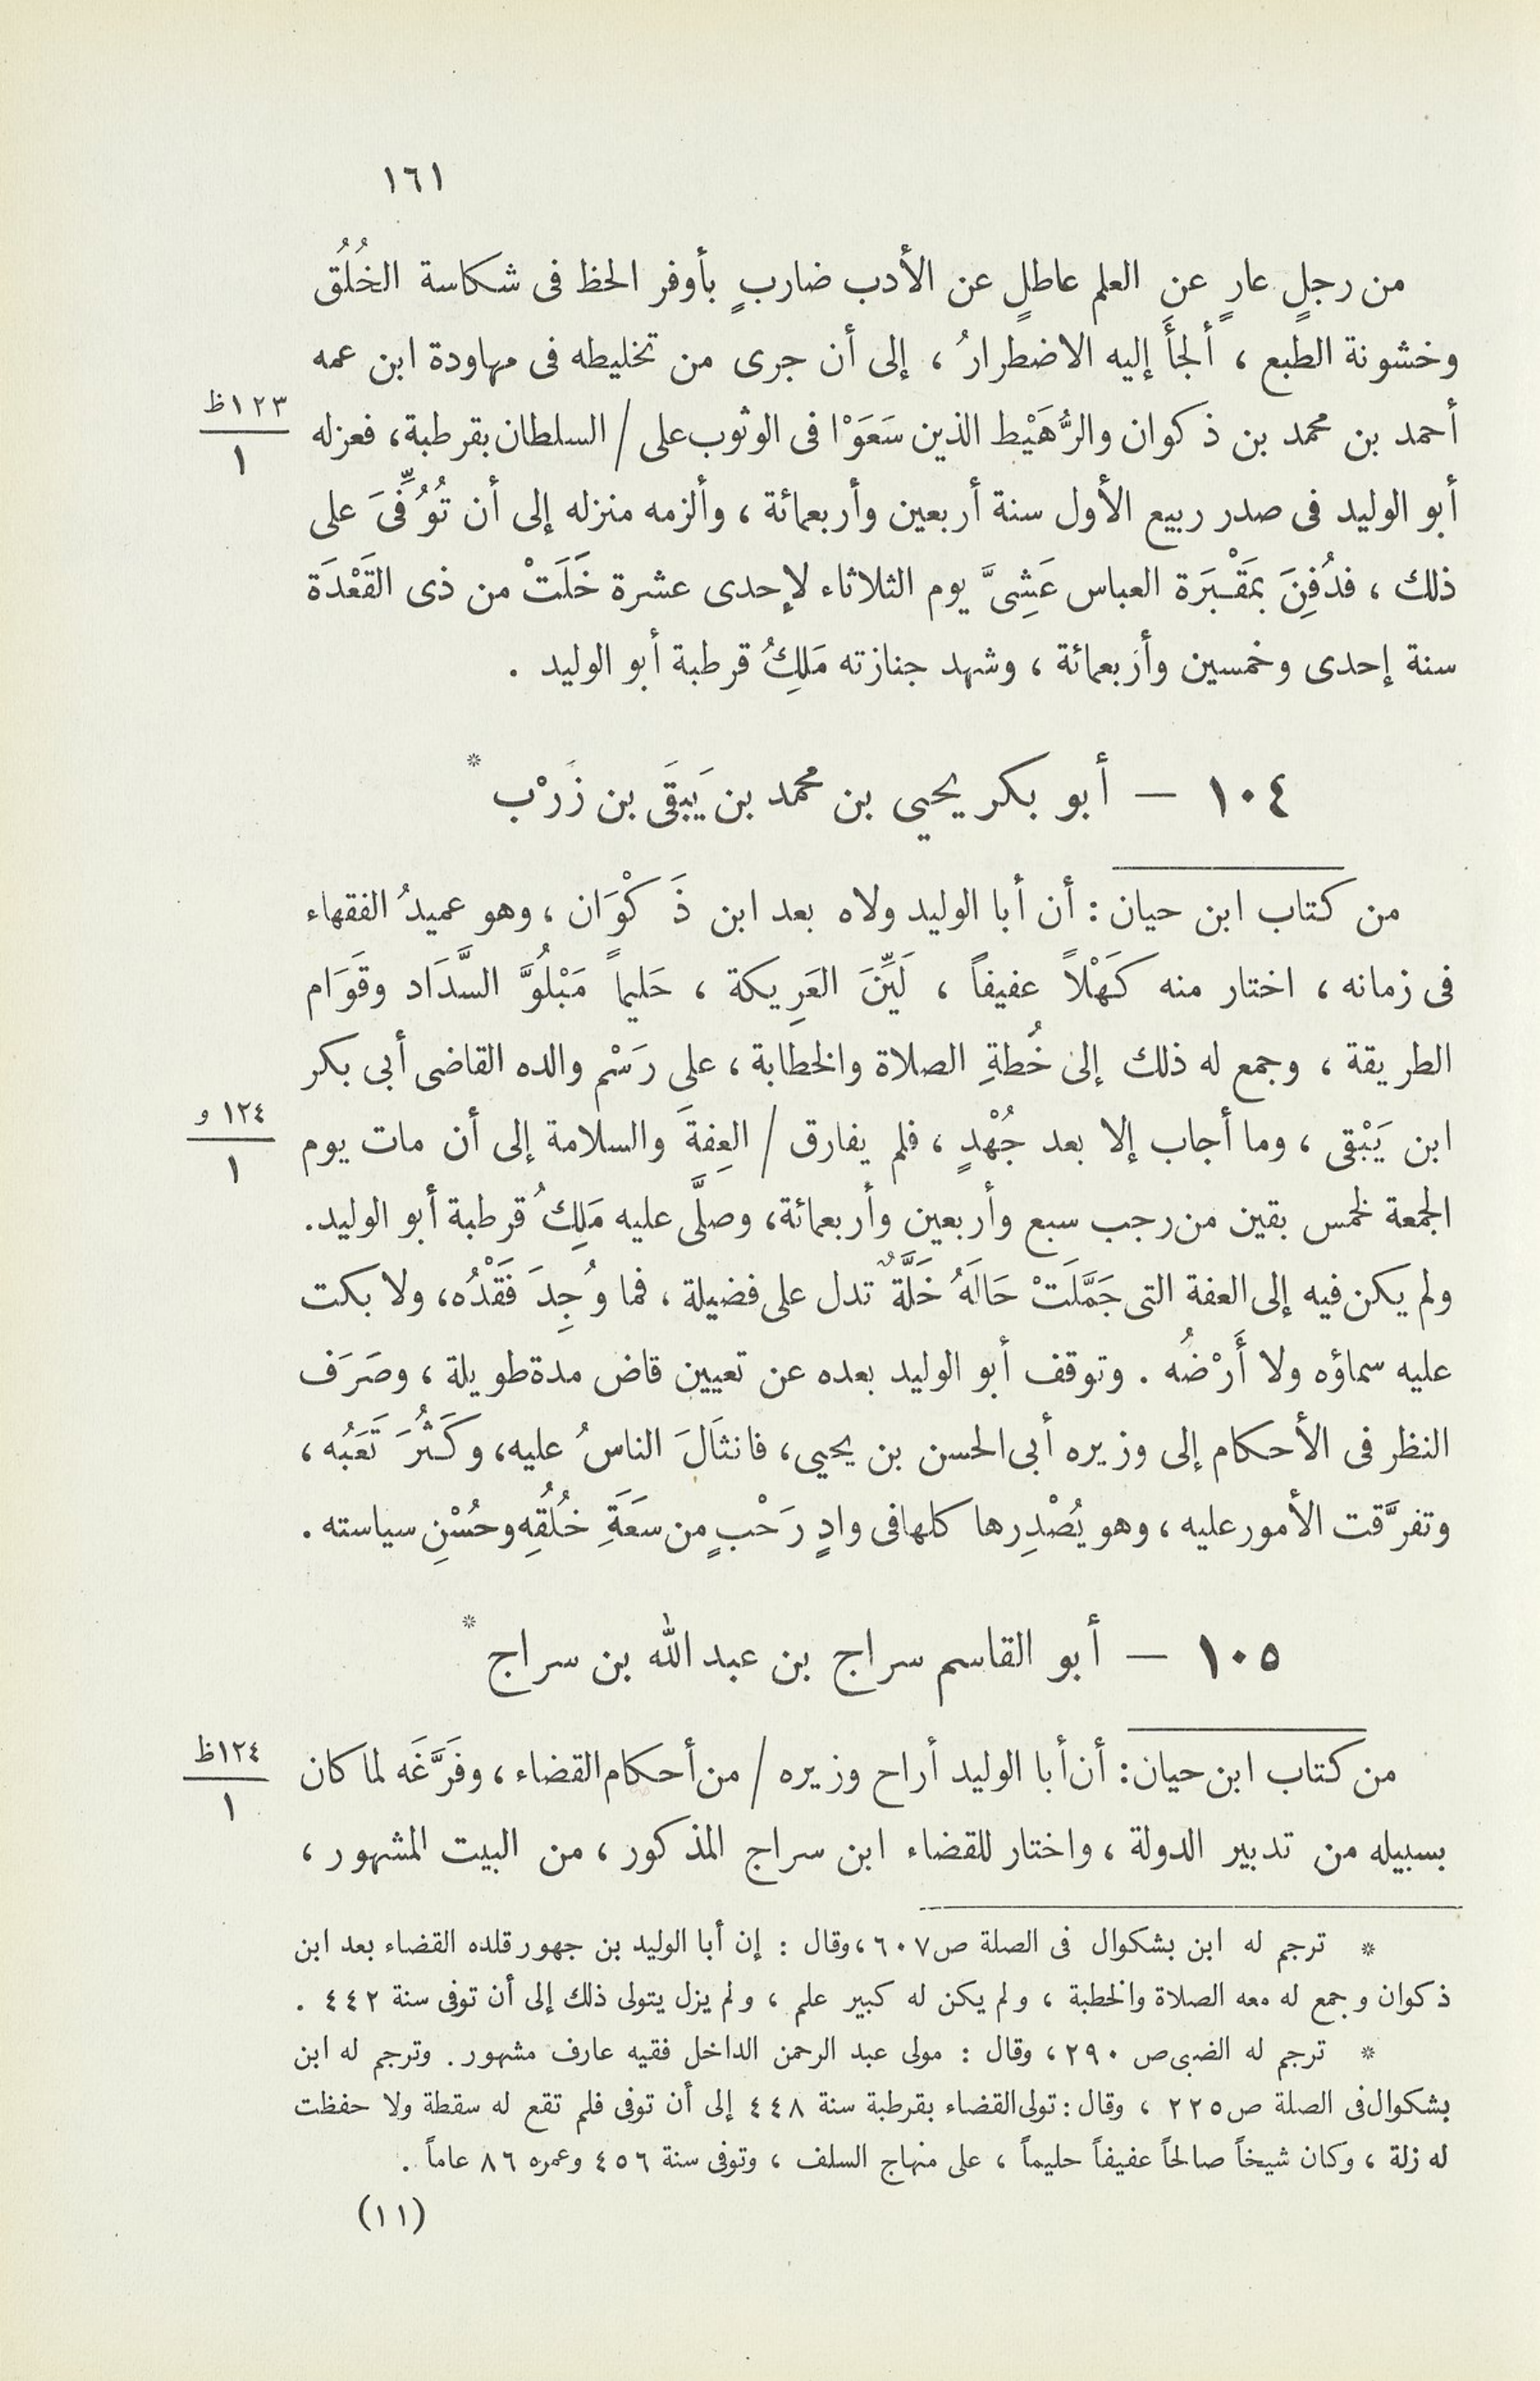 ١٦١
من رجلٍ عارٍ عن العلم عاطلٍ عن الأدب ضاربٍ بأوفر الحظ فى شكاسة الخُلُق
وخشونة الطبع ، ألجأَ إليه الاضطرارُ ، إلى أن جرى من تخليطه فى مهاودة ابن عمه
أحمد بن محمد بن ذكوان والرُّهَيْط الذين سَعَوْا فى الوثوب على / السلطان بقرطبة، فعزله
١٢٣ظ
١
أبو الوليد فى صدر ربيع الأول سنة أربعين وأربعمائة ، وألزمه منزله إلى أن تُوُفِّىَ على
ذلك ، فدُفِنَ بمَقْبَرَة العباس عَشِىَّ يوم الثلاثاء لإحدى عشرة خَلَتْ من ذى القَعْدَة
سنة إحدى وخمسين وأربعمائة ، وشهد جنازته مَلِكُ قرطبة أبو الوليد .
١٠٤ — أبو بكر يحيي بن محمد بن يَبقَى بن زَرْب *
من كتاب ابن حيان : أن أبا الوليد ولاه بعد ابن ذَكْوَان ، وهو عميدُ الفقهاء
فى زمانه ، اختار منه كَهْلاً عفيفاً ، لَيِّنَ العَرِيكة ، حَليماً مَبْلُوَّ السَّدَاد وقَوَام
الطريقة ، وجمع له ذلك إلى خُطةِ الصلاة والخطابة ، على رَسْم والده القاضى أبى بكر
ابن يَبْقى ، وما أجاب إلا بعد جُهْدٍ ، فلم يفارق / العِفةَ والسلامة إلى أن مات يوم
١٢٤ و
١
الجمعة لخمس بقين من رجب سبع وأربعين وأربعمائة، وصلَّى عليه مَلِكُ قرطبة أبو الوليد.
ولم يكن فيه إلى العفة التى جَمَّلَتْ حَالَهُ خَلَّةٌ تدل على فضيلة ، فما وُجِدَ فَقْدُه، ولا بكت
عليه سماؤه ولا أَرْضُه . وتوقف أبو الوليد بعده عن تعيين قاض مدة طويلة ، وصَرَف
النظر فى الأحكام إلى وزيره أبى الحسن بن يحيى، فانثَالَ الناسُ عليه، وكَثُرَ تَعَبُه ،
وتفرَّقت الأمور عليه ، وهو يُصْدِرها كلها فى وادٍ رَحْبٍ من سَعَةِ خُلُقُِه وحُسْنِ سياسته .
١٠٥ — أبو القاسم سراج بن عبد الله بن سراج *
من كتاب ابن حيان: أن أبا الوليد أراح وزيره / من أحكام القضاء ، وفَرَّغَه لما كان
١٢٤ظ
١
بسبيله من تدبير الدولة ، واختار للقضاء ابن سراج المذكور ، من البيت المشهور ،
* ترجم له ابن بشكوال فى الصلة ص٦٠٧ ،وقال : إن أبا الوليد بن جهور قلده القضاء بعد ابن
ذكوان وجمع له معه الصلاة والخطبة ، ولم يكن له كبير علم ، ولم يزل يتولى ذلك إلى أن توفى سنة ٤٤٢ .
* ترجم له الضبى ص ٢٩٠ ، وقال : مولى عبد الرحمن الداخل فقيه عارف مشهور . وترجم له ابن
بشكوال فى الصلة ص٢٢٥ ، وقال : تولى القضاء بقرطبة سنة ٤٤٨ إلى أن توفى فلم تقع له سقطة ولا حفظت
له زلة ، وكان شيخاً صالحاً عفيفاً حليماً ، على منهاج السلف ، وتوفى سنة ٤٥٦ وعمره ٨٦ عاماً .
(١١)